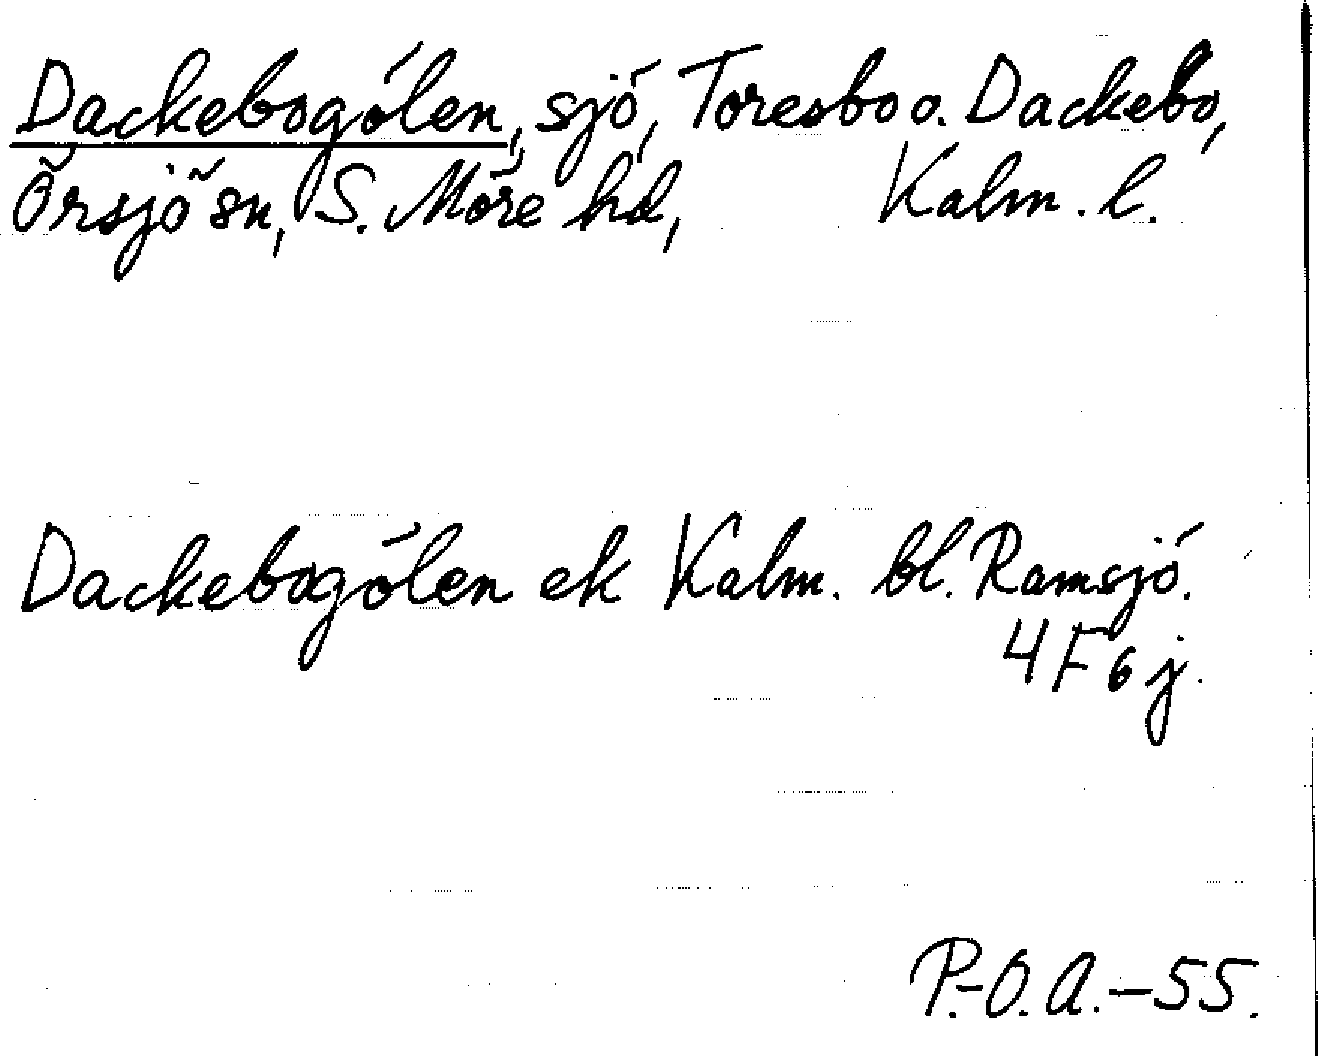 Dackebogölen, sjö, Toresbo o. Dackebo,
Örsjö sn, S. Möre hd, Kalm. l.
Dackebogölen ek Kalm. bl. Ramsjö.
4F6j.
P.-O.A.-55.